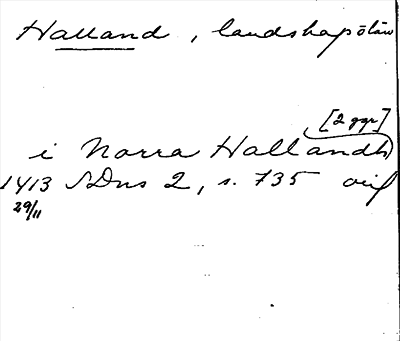 Halland, landskapötav
[2 ggr]
i Norra Hallandh
1413 SDns 2, s. 735 avs
29/11